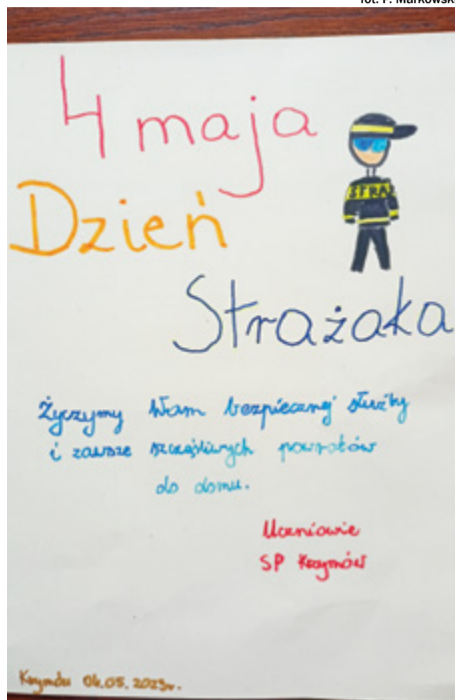 fot. P. Markowsk
4 maja
Dzień
STRAŻ
Strażaka
Życzymy Wam bezpiecznej służby
i zawsze szczęśliwych powrotów
do domu.
Uczniowie
SP Krzymów
Krzymów 04.05.2023r.